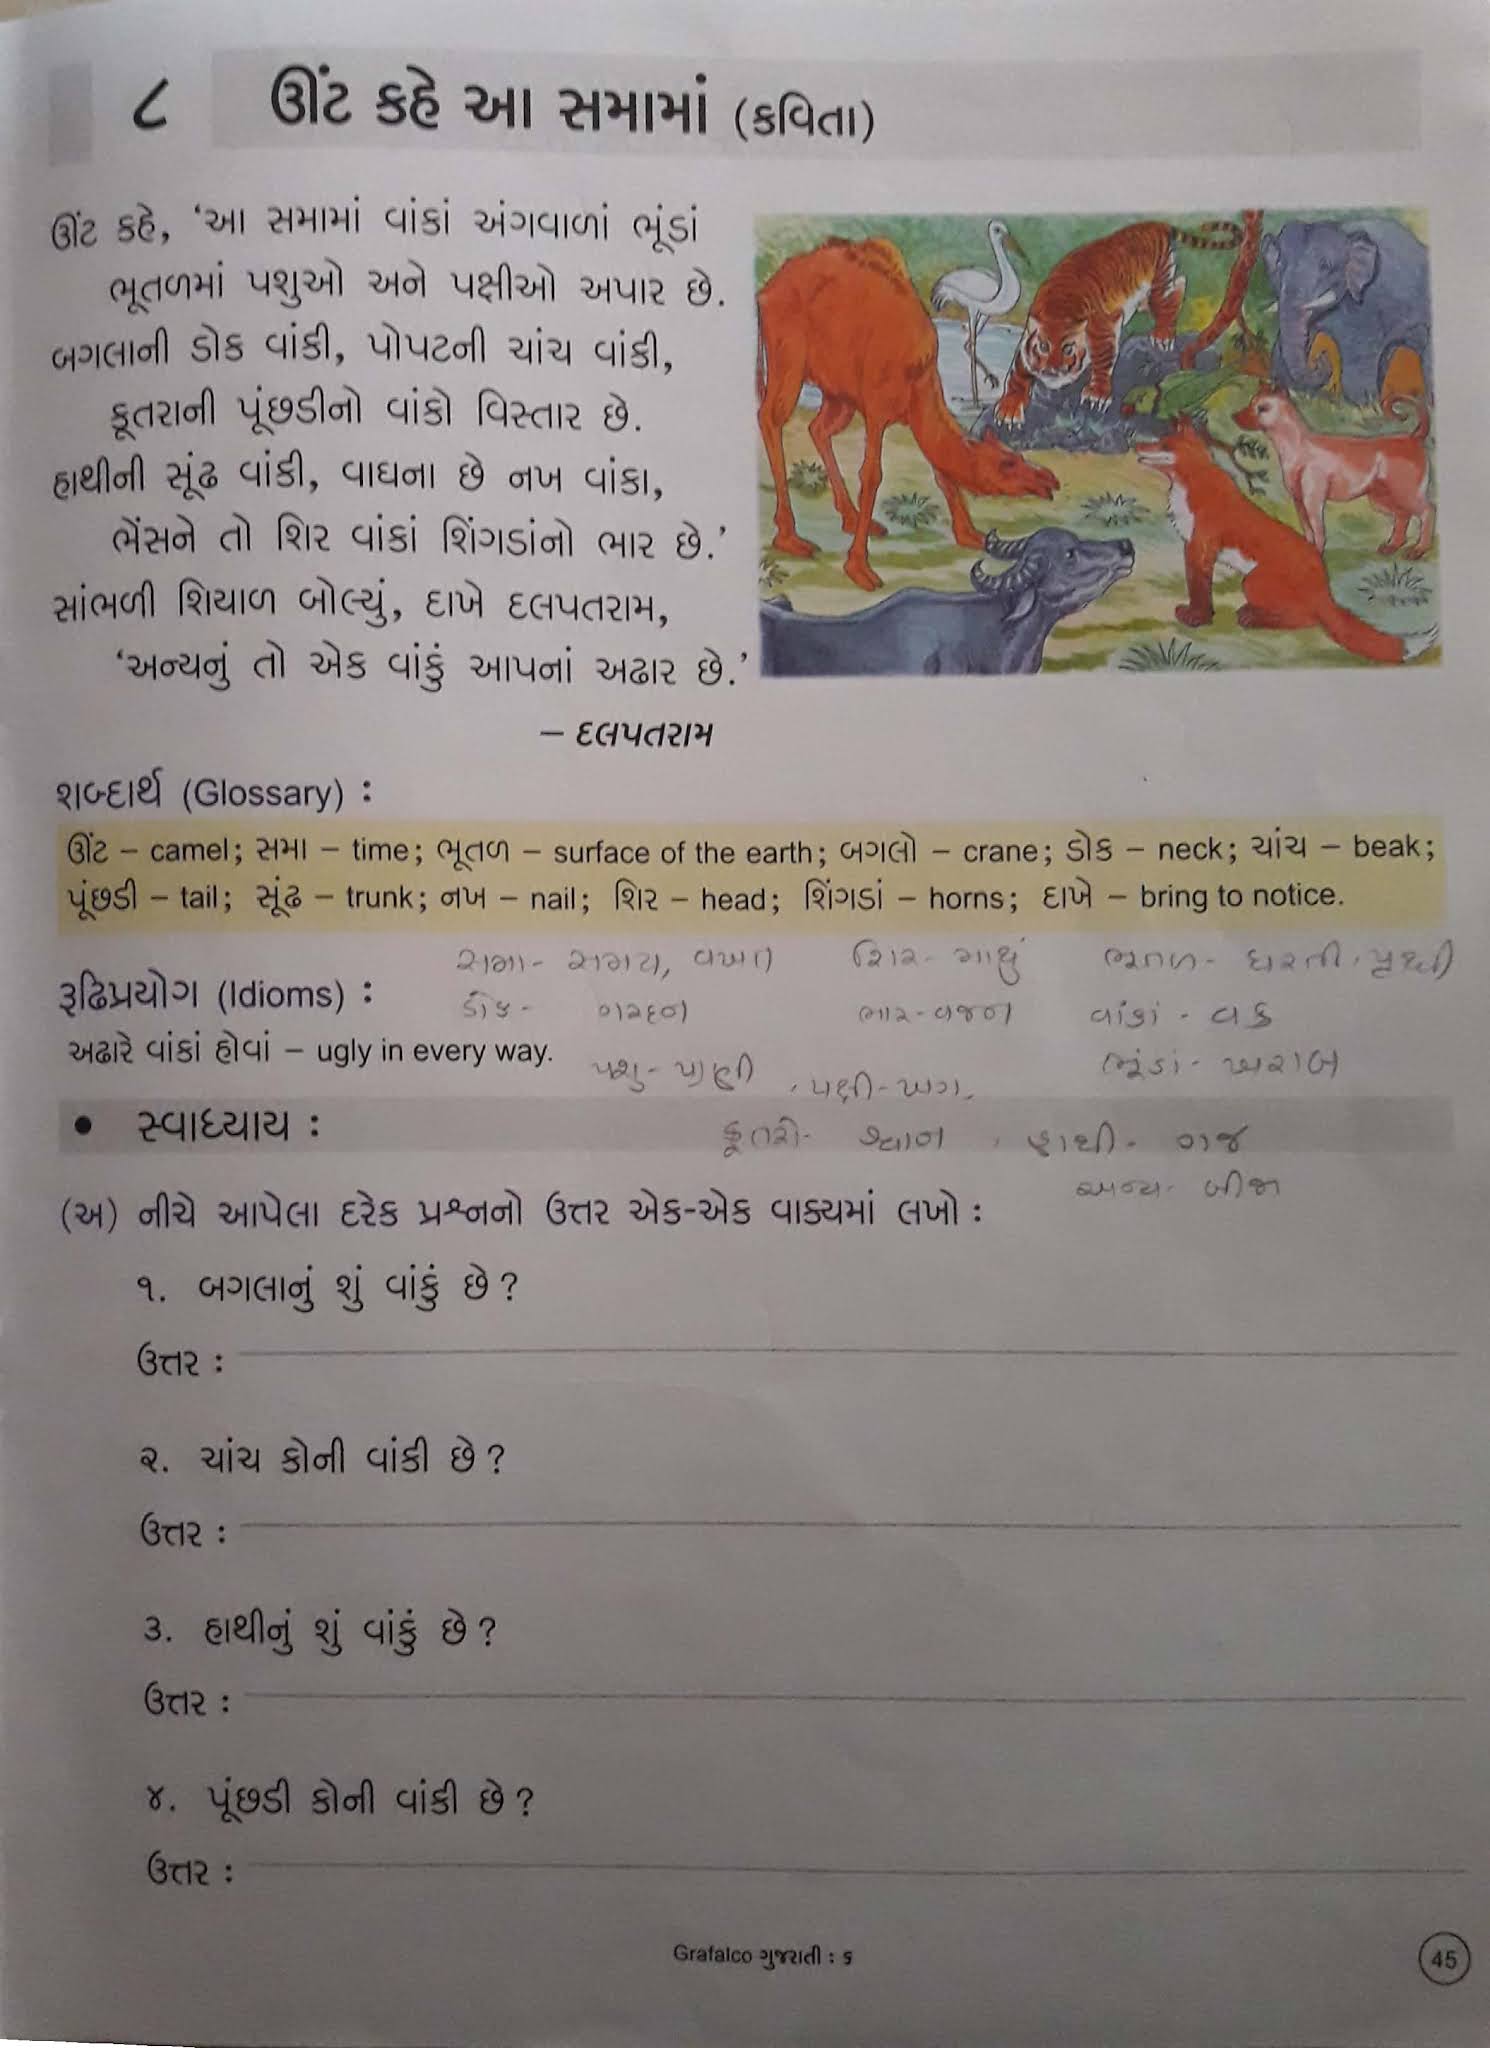 ૮ ઊંટ કહે આ સમામાં (કવિતા)
ઊંટ કહે, ‘આ સમામાં વાંકાં અંગવાળાં ભૂંડાં
ભૂતળમાં પશુઓ અને પક્ષીઓ અપાર છે.
બગલાની ડોક વાંકી, પોપટની ચાંચ વાંકી,
કૂતરાની પૂંછડીનો વાંકો વિસ્તાર છે.
હાથીની સૂંઢ વાંકી, વાઘના છે નખ વાંકા,
ભેંસને તો શિર વાંકાં શિંગડાંનો ભાર છે.’
સાંભળી શિયાળ બોલ્યું, દાખે દલપતરામ,
‘અન્યનું તો એક વાંકું આપનાં અઢાર છે.’
– દલપતરામ
શબ્દાર્થ (Glossary) :
ઊંટ – camel; સમા – time; ભૂતળ – surface of the earth; બગલો – crane; ડોક – neck; ચાંચ – beak;
પૂંછડી – tail; સૂંઢ – trunk; નખ – nail; શિર – head; શિંગડાં – horns; દાખે – bring to notice.
સમા- સમય, વખત શિર- માથું ભૂતળ- ધરતી, પૃથ્વી
રૂઢિપ્રયોગ (Idioms) :
ડોક- ગરદન ભાર-વજન વાંકાં - વક્ર
અઢારે વાંકાં હોવાં – ugly in every way.
પશુ- પ્રાણી , પક્ષી-ખગ, ભૂંડાં- ખરાબ
• સ્વાધ્યાય :
કૂતરો- શ્વાન , હાથી- ગજ
અન્ય- બીજા
(અ) નીચે આપેલા દરેક પ્રશ્નનો ઉત્તર એક-એક વાક્યમાં લખો :
૧. બગલાનું શું વાંકું છે?
ઉત્તર :
૨. ચાંચ કોની વાંકી છે?
ઉત્તર :
૩. હાથીનું શું વાંકું છે?
ઉત્તર :
૪. પૂંછડી કોની વાંકી છે?
ઉત્તર :
Grafalco ગુજરાતી : ૬
45